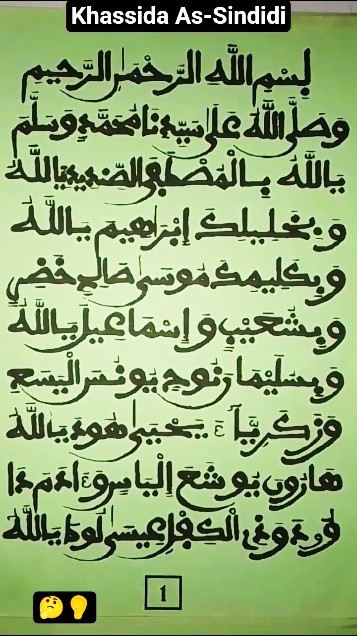 Khassida As-Sindidi
بِسْمِ اللَّهِ الرَّحْمَٰنِ الرَّحِيمِ
وَصَلَّى اللَّهُ عَلَى سَيِّدِنَا مُحَمَّدٍ وَسَلَّمَ
يَا اللَّهُ بِالْمُصْطَفَى الصِّنْدِيدِ يَا اللَّهُ
وَبِخَلِيلِكَ إِبْرَاهِيمَ يَا اللَّهُ
وَبِكَلِيمِكَ مُوسَى صَالِحٍ خَضِرٍ
وَبِشُعَيْبٍ وَإِسْمَاعِيلَ يَا اللَّهُ
وَبِسُلَيْمَانَ نُوحٍ يُونُسَ الْيَسَعِ
وَزَكَرِيَّاءَ يَحْيَى هُودٍ يَا اللَّهُ
هَارُونَ يُوشَعَ إِلْيَاسٍ وَءَادَمَ دَا
وُودَ وَذِي الْكِفْلِ عِيسَى لُوطٍ يَا اللَّهُ
1